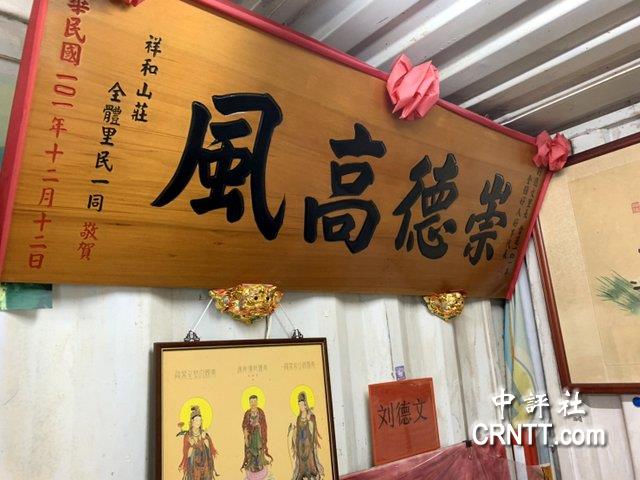 崇德高風
祥和山莊
全體里民一同 敬賀
華民國一〇一年十二月十二日
刘德文
中評社
CRNTT.com